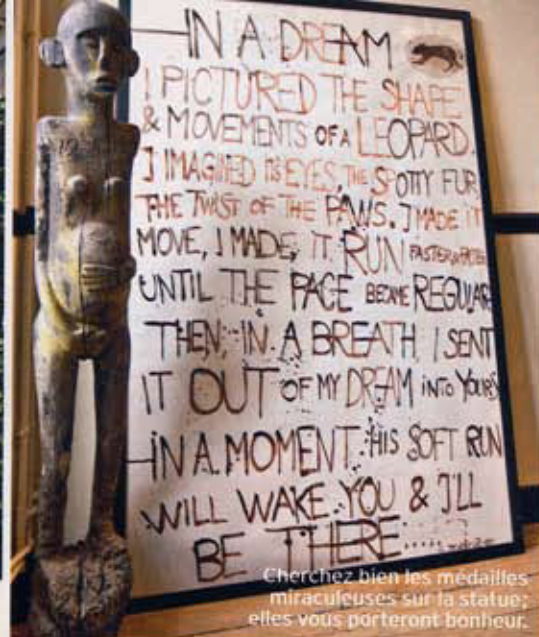 IN A DREAM
I PICTURED THE SHAPE
& MOVEMENTS OF A LEOPARD.
I IMAGINED ITS EYES, THE SPOTTY FUR
THE TWIST OF THE PAWS. I MADE IT
MOVE, I MADE IT RUN FASTER & FASTER
UNTIL THE PACE BECAME REGULAR
THEN, IN A BREATH, I SENT
IT OUT OF MY DREAM INTO YOURS
IN A MOMENT HIS SOFT RUN
WILL WAKE YOU & I'LL
BE THERE.....
Cherchez bien les médailles
miraculeuses sur la statue;
elles vous porteront bonheur.